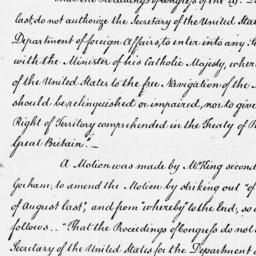 last, do not authorize the Secretary of the United Sta
Department of foreign Affairs, to enter into any
with the Minister of his Catholic Majesty, wher
of the United States to the free Navigation of the
should be relinquished or impaired, nor to give
Right of Territory comprehended in the Treaty of
Great Britain." —
A Motion was made by Mr King second
Gorham, to amend the Motion by striking out "of
of August last", and from "whereby" to the End, so
follows. - "That the Proceedings of Congress do not
Secretary of the United States for the Department